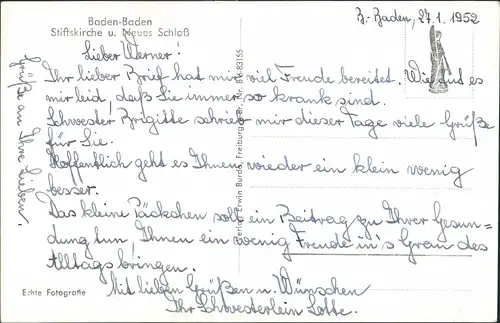 Baden-Baden
Stiftskirche u. Neues Schloß
B.-Baden, 27.1.1952
Lieber Werner!
Ihr lieber Brief hat mir viel Freude bereitet. Wie tut es
mir leid, daß Sie immer so krank sind.
Schwester Brigitte schrieb mir dieser Tage viele Grüße
für Sie.
Hoffentlich geht es Ihnen wieder ein klein wenig
besser.
Das kleine Päckchen soll ein Beitrag zu Ihrer Gesun-
dung tun, Ihnen ein wenig Freude in's Grau des
Alltags bringen.
Mit lieben Grüßen u. Wünschen
Ihr Schwesterlein Lotte.
Grüße an Ihre Lieben.
Echte Fotografie
Verlag Erwin Burda, Freiburg Nr. 83155